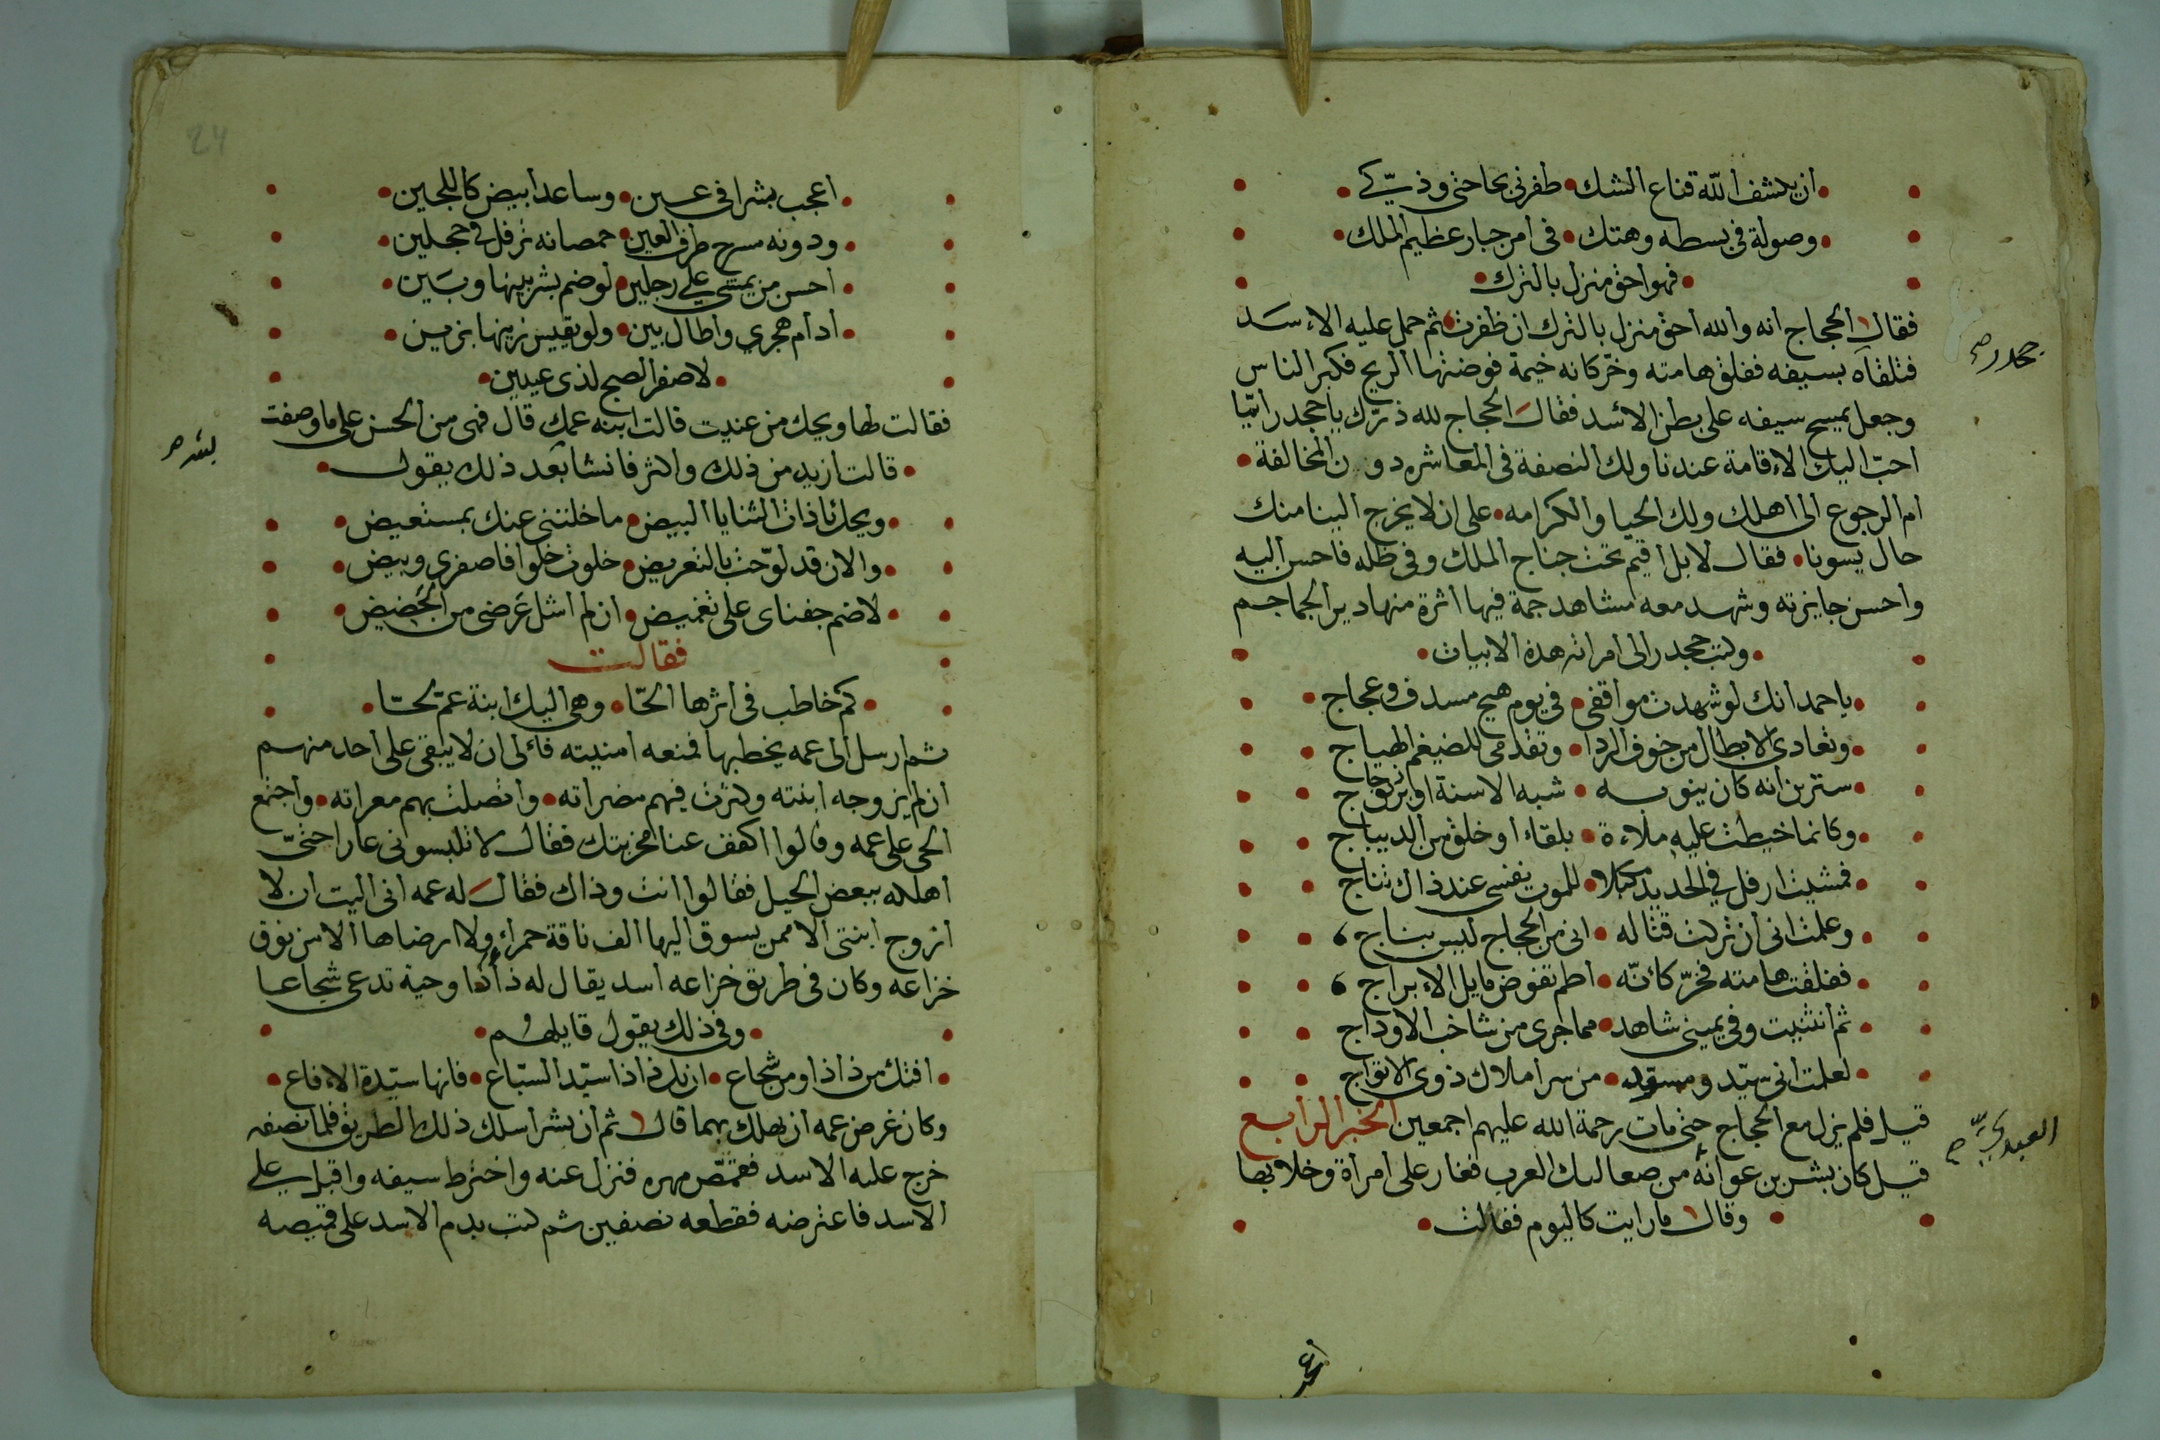 ان يكشف الله قناع الشك • ظفرني بحاجتي ودركي •
وصولة في بسطه وهتك • في امر جبار عظيم الملك •
• فهو احق منزل بالترك •
فقال الحجاج انه والله احق منزل بالترك ان ظفرت ثم حمل عليه الاسد
فتلقاه بسيفه ففلق هامته وخر كانه خيمة قوضتها الريح فكبر الناس
وجعل يمسح سيفه على بطن الاسد فقال الحجاج لله درك يا جحدر ايما
احب اليك الاقامة عندنا ولك النصفة في المعاشره دون المخالفة •
ام الرجوع الى اهلك ولك الحبا والكرامه • على ان لا يخرج الينا منك
حال يسونا • فقال لا بل اقيم تحت جناح الملك وفي ظله فاحسن اليه
واحسن جايزته وشهد معه مشاهد جمة فيها اثرة منها دير الجماجم
• وكتب جحدر الى امراته هذه الابيات •
• يا حمد انك لو شهدت مواقفي • في يوم هيج مسدف وعجاج •
• وتعادى الابطال من خوف الردا • وتقدمي للضيغم الهياج •
• سترين انه كان بنوبه • شبه الاسنة او زجاج
• وكانما خيطت عليه ملاءة • بلقاء او خلق من الديباج
• فمشيت ارفل في الحديد مكبلا • للموت نفسي عند ذاك تناج
• وعلمت اني ان تركت قتاله • اني من الحجاج ليس بناج
• ففلقت هامته فخر كانه • اطم تقوض مايل الابراج
• ثم انثنيت وفي يميني شاهد • مما جرى من شاخب الاوداج
• لعلمت اني سيد • من سر املاك ذوى الاتواج
قيل فلم يزل مع الحجاج حتى مات رحمة الله عليهم اجمعين الخبر الرابع
قيل كان بشر بن عوانه من صعاليك العرب فغار على امراة وخلا بها
• وقال ما رايت كاليوم فقالت •
جحدر
العبدي
اعجب
24
• اعجب بشرا في عين • وساعد ابيض كاللجين •
• ودونه سرح طرف العين • خمصانه ترفل في حجلين •
• احسن من يمشي على رجلين • لو ضم بشر بينها وبين •
• ادام هجري واطال بين • ولو يقيس زينها بزين •
• لاصفر الصبح لذى عينين •
فقالت لها ويحك من عنيت قالت ابنه عمك قال فهي من الحسن على ما وصفت
• قالت ازيد من ذلك واكثر فانشا بعد ذلك يقول •
• ويحك يا ذات الثنايا البيض • ما خلتني عنك بمستعيض •
• والان قد لوحت بالتعريض • خلوت خلوا فاصفري وبيض •
• لا ضم جفناى على تغميض • ان لم اشل عرضي من الحضيض •
فقالت
• كم خاطب في اثرها الحا • وهي اليك ابنة عم لحا •
ثم ارسل الى عمه يخطبها فمنعه امنيته فالى ان لا يبقي على احد منهم
ان لم يزوجه ابنته وكثرت فيهم مضراته • واتصلت بهم معراته • واجتمع
الحي على عمه وقالوا اكفف عنا مجرنتك فقال لا تلبسوني عارا حتى
اهلكه ببعض الحيل فقالوا انت وذاك فقال له عمه اني اليت ان لا
ازوج ابنتي الا ممن يسوق اليها الف ناقة حمراء ولا ارضاها الا من نوق
خزاعه وكان في طريق خزاعه اسد يقال له ذاذا وحية تدعى شجاعا
• وفي ذلك يقول قايلهم •
• افتك من ذاذا ومن شجاع • ان يك ذاذا سيد السباع • فانها سيدة الافاع •
وكان غرض عمه ان يهلك بهما قال ثم ان بشرا سلك ذلك الطريق فلما نصفه
خرج عليه الاسد فقمص مهره فنزل عنه واخترط سيفه واقبل على
الاسد فاعترضه فقطعه نصفين ثم كتب بدم الاسد على قميصه
بشر